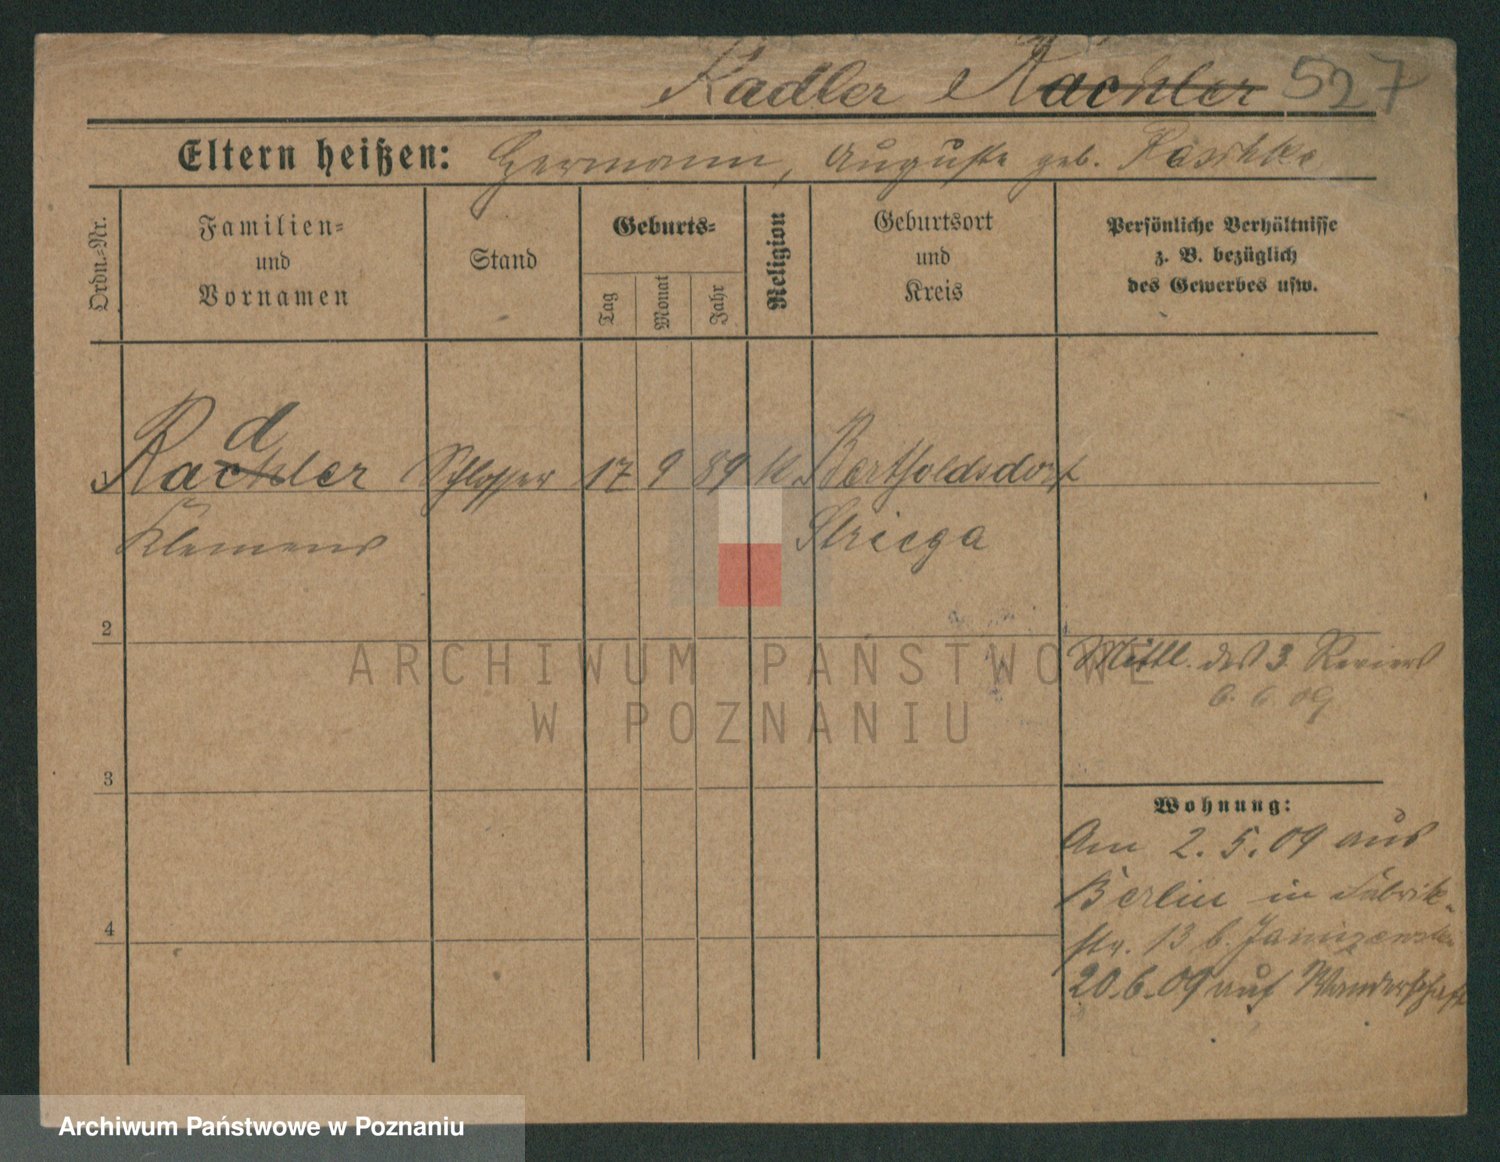 Radler Rachler 527
Eltern heißen: Hermann, Auguste geb. Raschke
Ordn.-Nr.
Familien-
und
Vornamen
Stand
Geburts-
Tag
Monat
Jahr
Religion
Geburtsort
und
Kreis
Persönliche Verhältnisse
z. B. bezüglich
des Gewerbes usw.
d
1 Rachler Schlosser 17 9 89 k. Bertholdsdorf
Klemens Striega
2
Mittl. des 3. Reviers
6. 6. 09
3
Wohnung:
Am 2. 5. 09 aus
Berlin in Fabrik-
4
str. 13 b.
20.6.09 auf Wanderschaft
ARCHIWUM PAŃSTWOWE
W POZNANIU
Archiwum Państwowe w Poznaniu